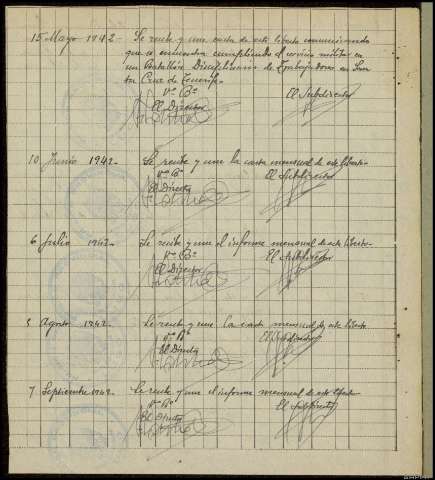 15 Mayo 1942- Se recibe y une carta de este liberto comunicando
que se encuentra cumpliendo el servicio militar en
un Batallón Disciplinario de Trabajadores en San
ta Cruz de Tenerife.
Vº Bº
El Director
El Subdirector
10 Junio 1942- Se recibe y une la carta mensual de este liberto-
Vº Bº
El Director
El Subdirector
6 Julio 1942- Se recibe y une el informe mensual de este liberto-
Vº Bº
El Director
El Subdirector
5 Agosto 1942- Se recibe y une la carta mensual de este liberto
Vº Bº
El Director
El Subdirector
7 Septiembre 1942- Se recibe y une el informe mensual de este liberto-
Vº Bº
El Director
El Subdirector